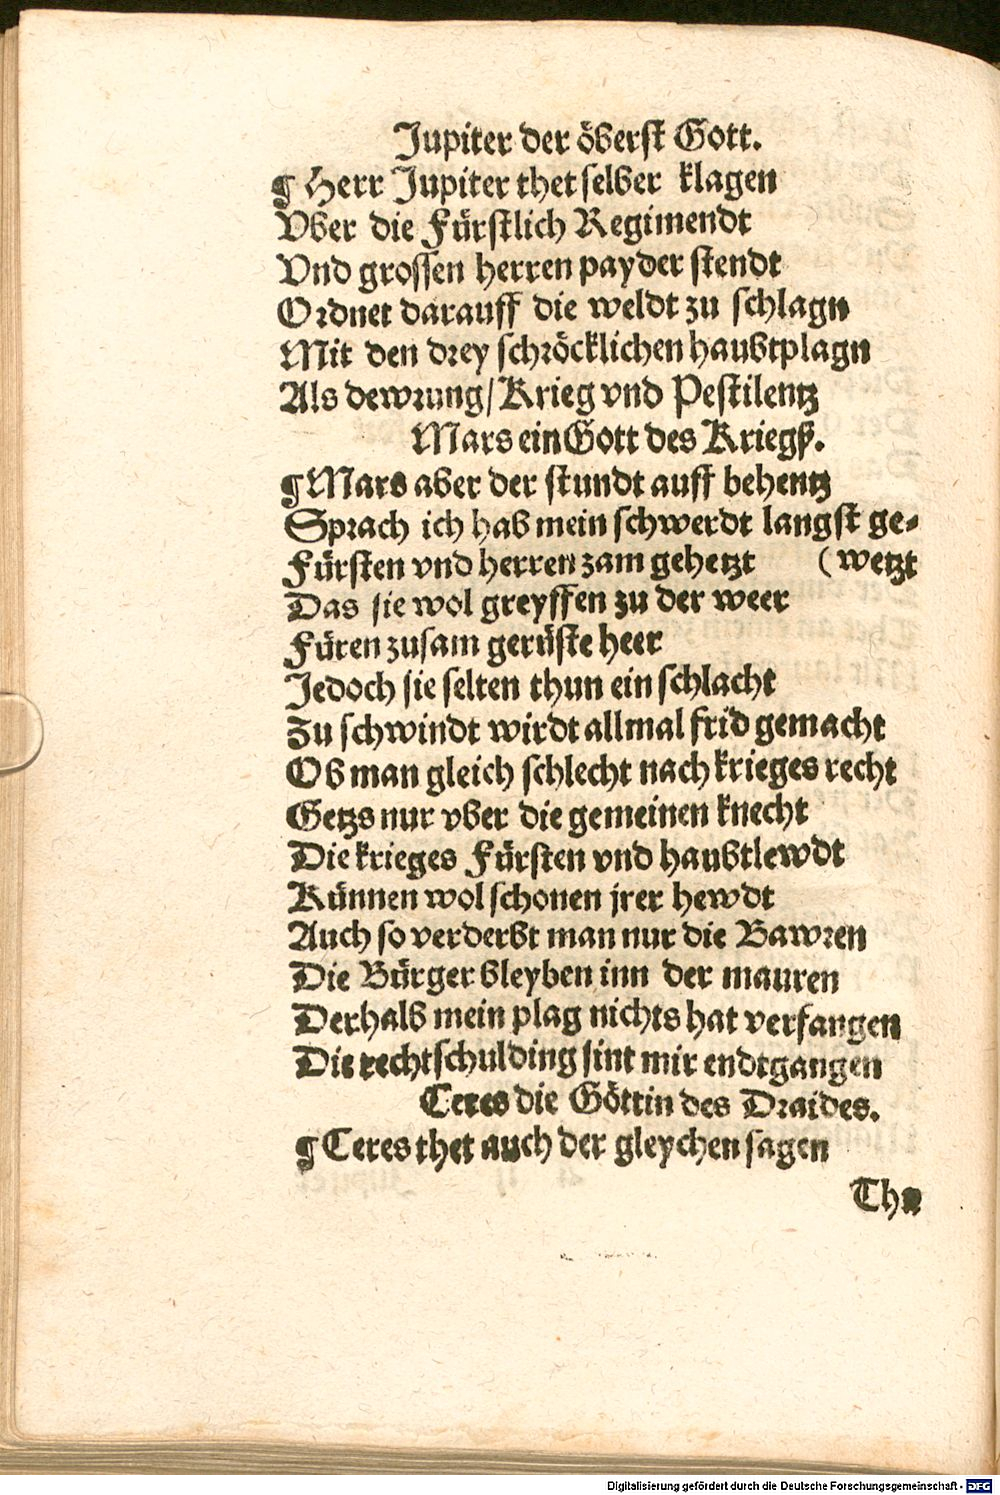 Jupiter der öberst Gott.
¶ Herr Jupiter thet selber klagen
Vber die Fürstlich Regimendt
Vnd grossen herren payder stendt
Ordnet darauff die weldt zu schlagn
Mit den drey schröcklichen haubtplagn
Als dewrung/ Krieg vnd Pestilentz
Mars ein Gott des Kriegß.
¶ Mars aber der stundt auff behentz
Sprach ich hab mein schwerdt langst ge-
Fürsten vnd herren zam gehetzt (wetzt
Das sie wol greyffen zu der weer
Füren zusam gerüste heer
Jedoch sie selten thun ein schlacht
Zu schwindt wirdt allmal frid gemacht
Ob man gleich schlecht nach krieges recht
Getzs nur vber die gemeinen knecht
Die krieges Fürsten vnd haubtlewdt
Künnen wol schonen jrer hewdt
Auch so verderbt man nur die Bawren
Die Bürger bleyben inn der mauren
Derhalb mein plag nichts hat verfangen
Die rechtschulding sint mir endtgangen
Ceres die Göttin des Draides.
¶ Ceres thet auch der gleychen sagen
Digitalisierung gefördert durch die Deutsche Forschungsgemeinschaft - DFG